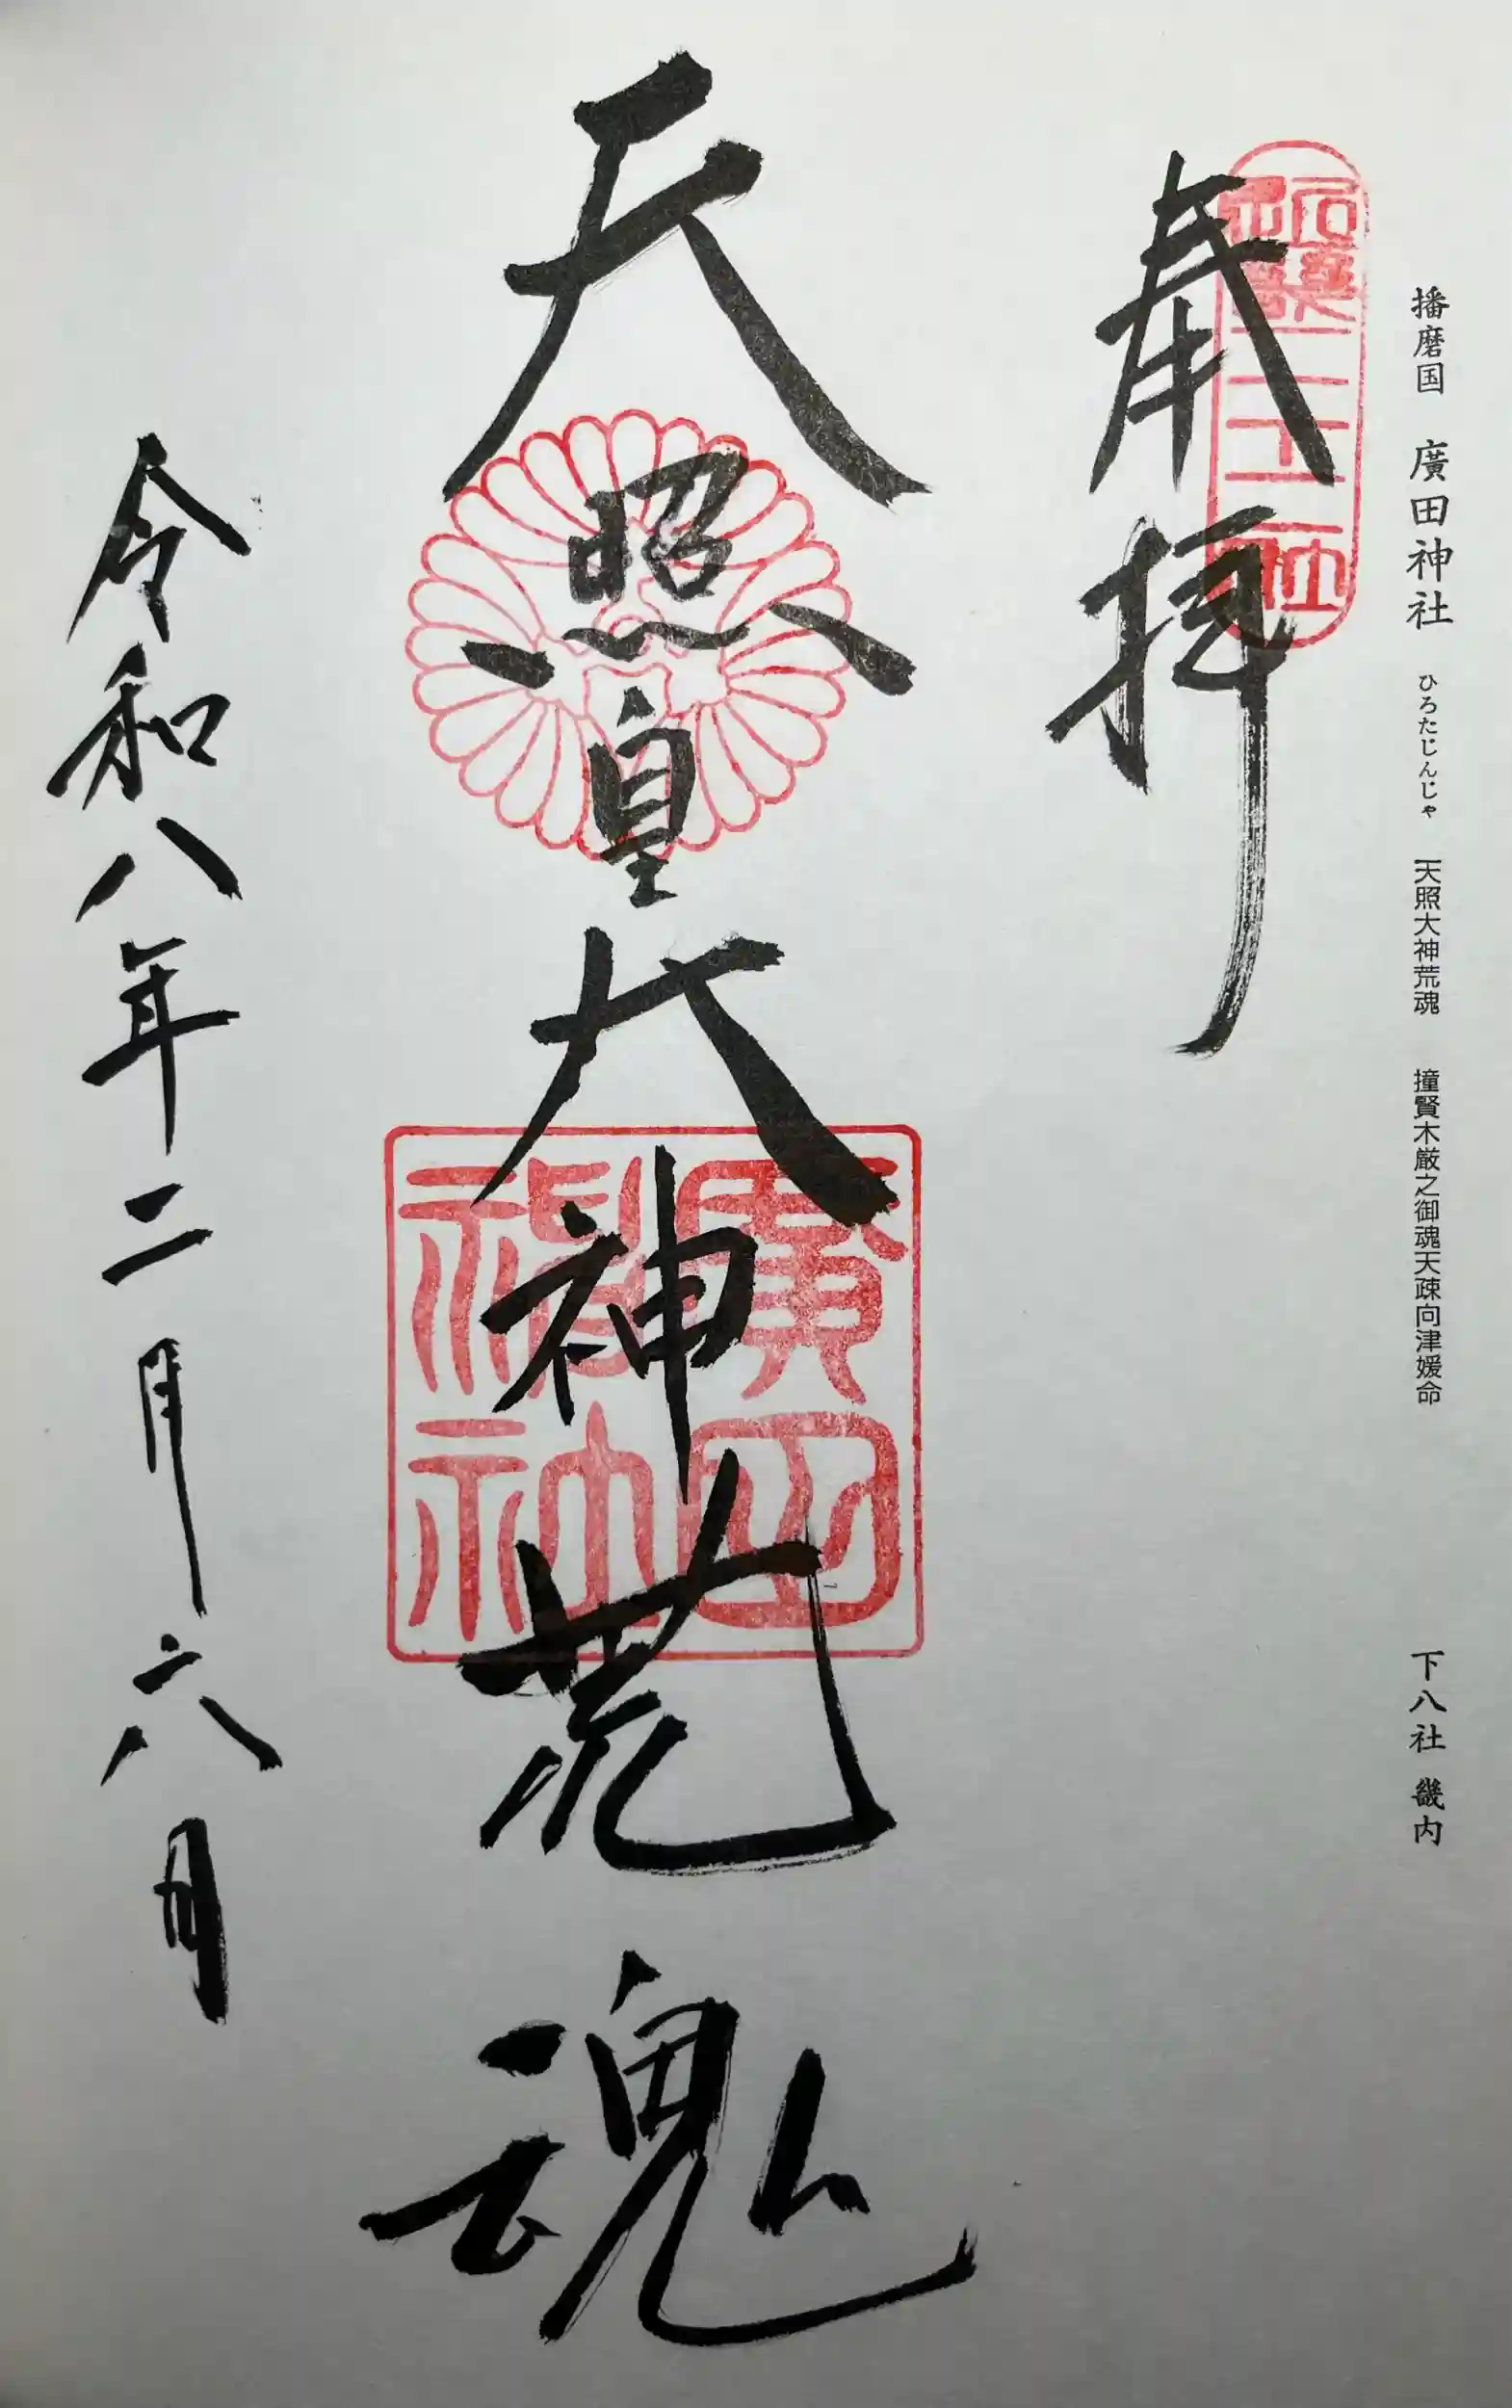 播磨国 廣田神社 ひろたじんじゃ 天照大神荒魂 撞賢木厳之御魂天疎向津媛命 下八社 畿内
二十二社
奉拝
天照皇大神荒魂
廣田神社
令和八年二月六日